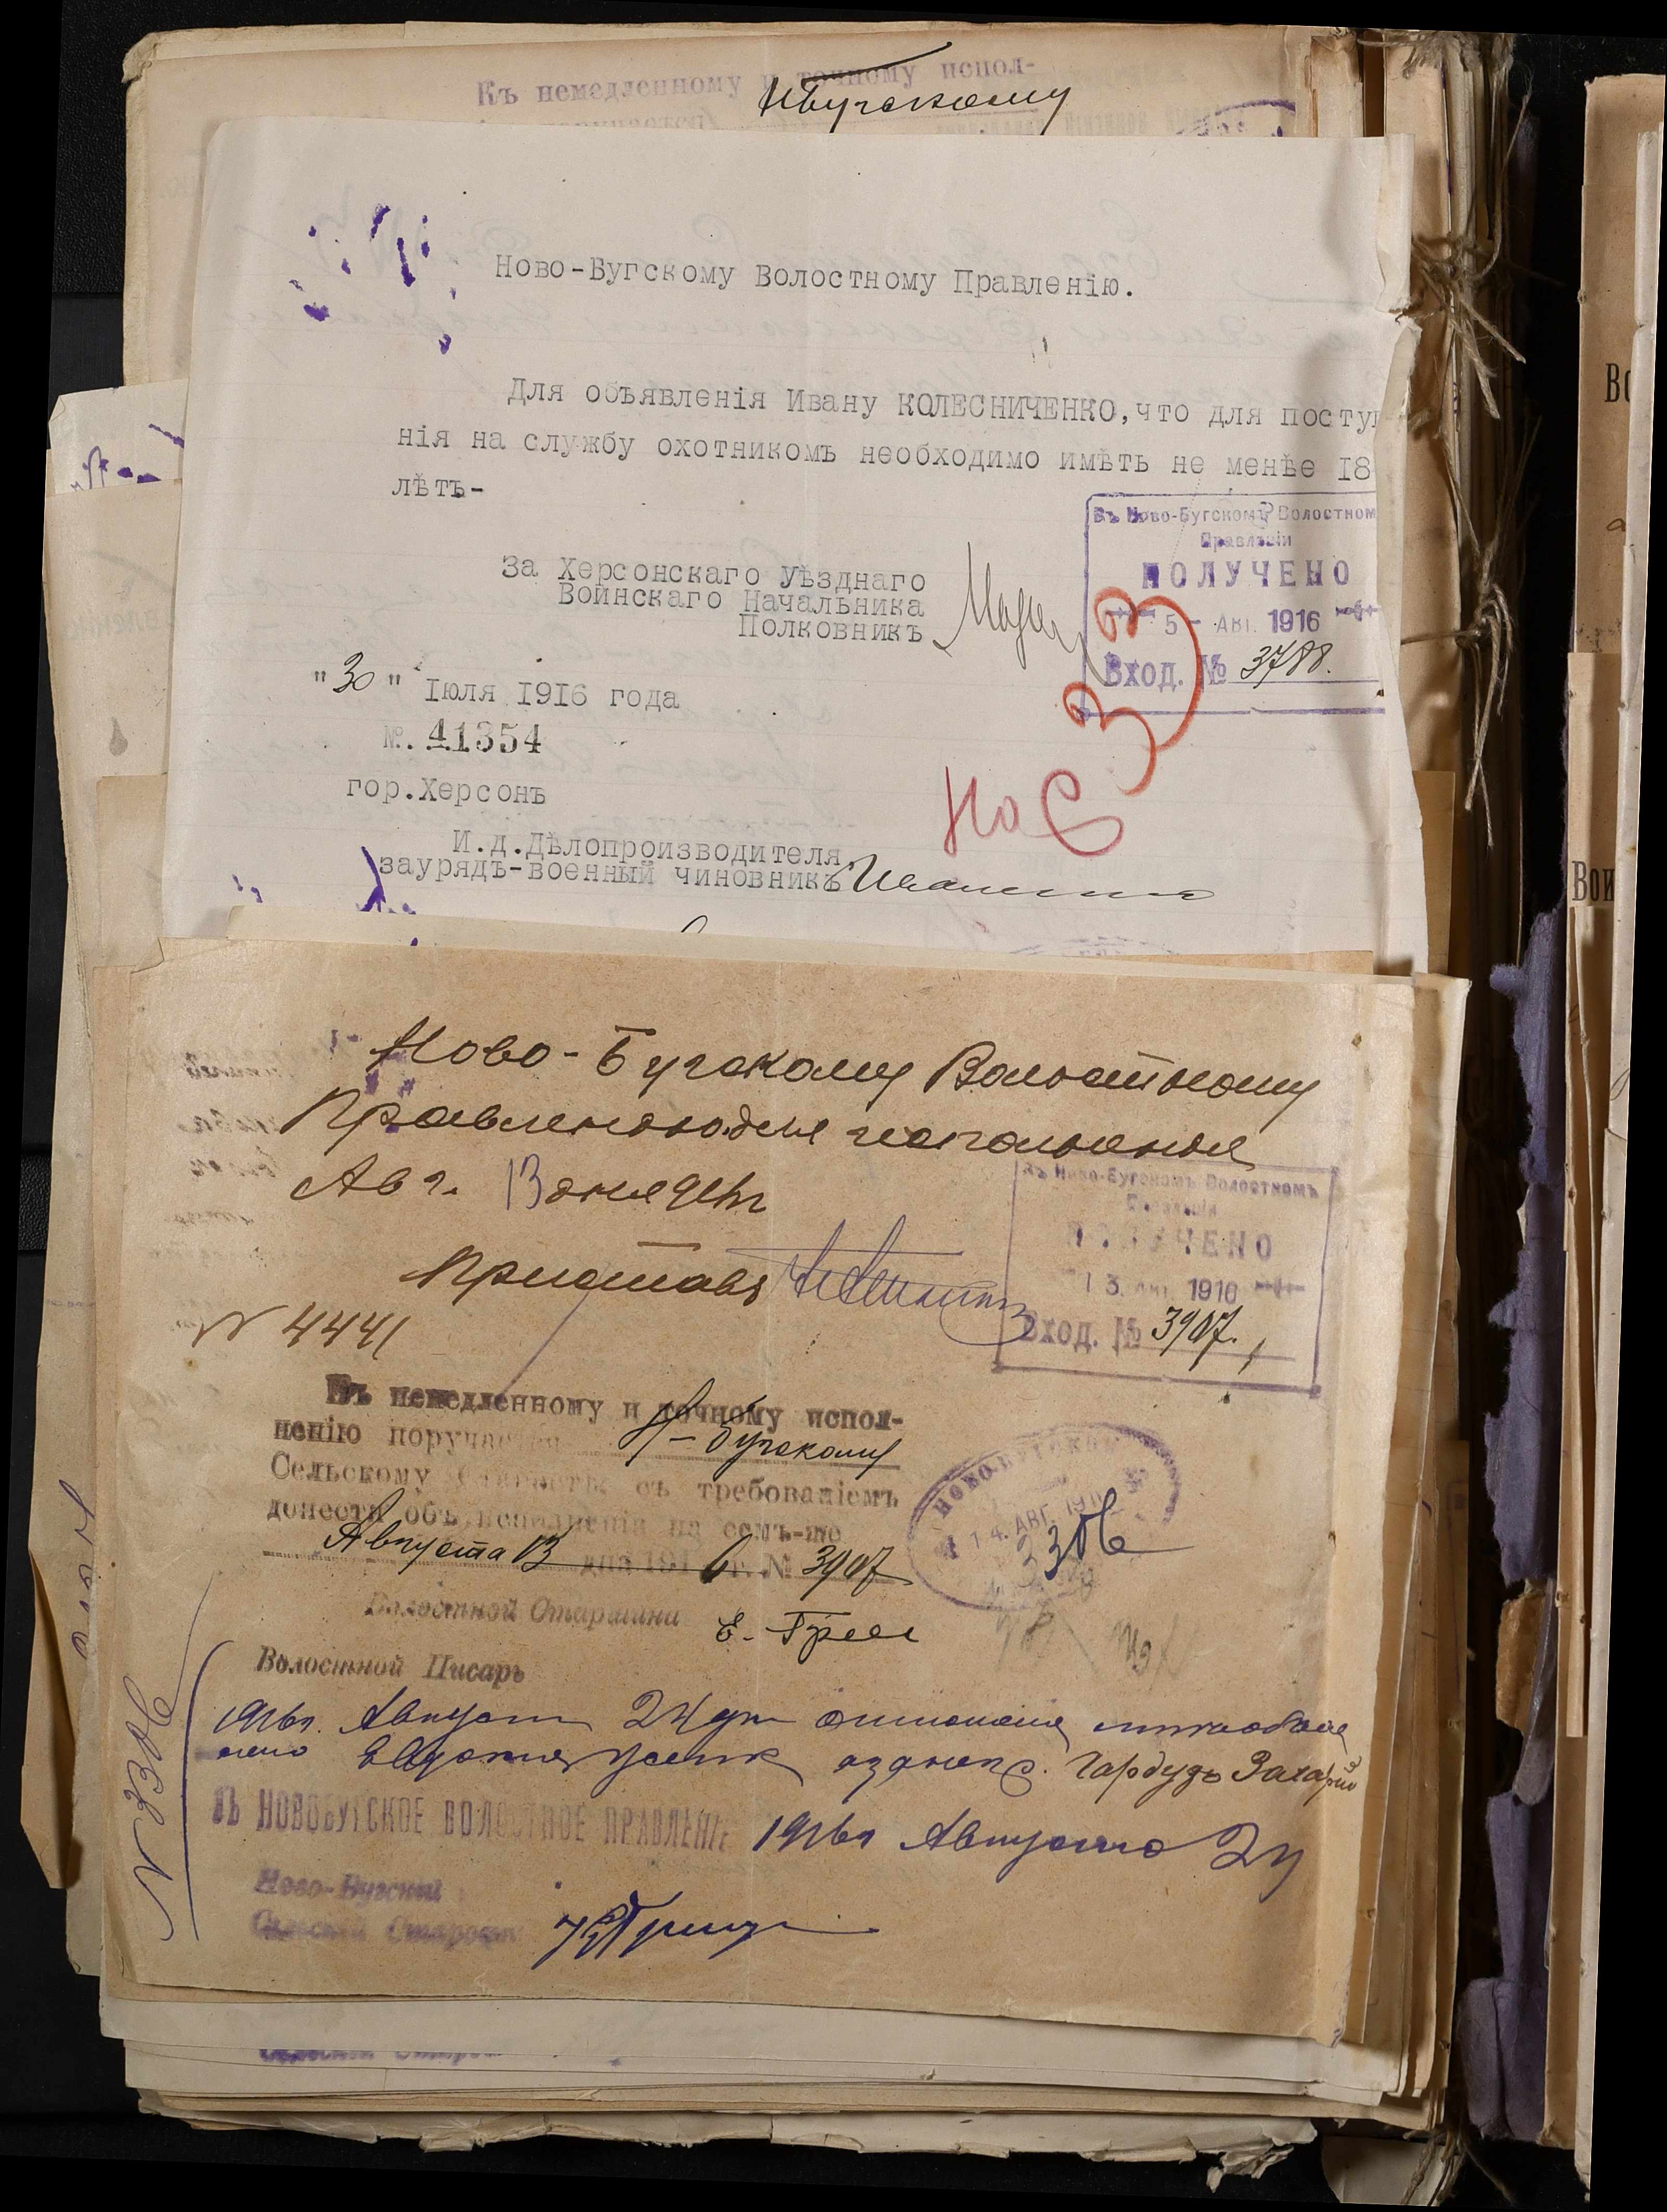 Къ немедленному и точному испол-
Нбугскому
Ново-Бугскому Волостному Правленію.
Для объявленія Ивану КОЛЕСНИЧЕНКО, что для поступ
нія на службу охотникомъ необходимо имѣть не менѣе 18
лѣтъ-
Въ Ново-Бугскомъ Волостном
Правленіи
ПОЛУЧЕНО
5 - АВГ. 1916
Вход. № 3788.
За Херсонскаго Уѣзднаго
Воинскаго Начальника
Полковникъ
"30" Іюля 1916 года
№. 41354
гор. Херсонъ
И.д.Дѣлопроизводителя,
заурядъ-военный чиновникъ
Ново-Бугскому Волостному
Правленію для исполненія
Авг. 13 дня 916 г
Приставъ
N 4441
Въ Ново-Бугскомъ Волостномъ
Правленіи
ПОЛУЧЕНО
13 АВГ. 1916
Вход. № 3907.
Къ немедленному и точному испол-
ненію поручается Н-Бугскому
Сельскому Старостѣ съ требованіемъ
донести объ исполненіи на семъ-же
Августа 13 дня 1916 г. № 3907
14 АВГ. 191
3306
Волостной Старшина
Волостной Писарь
1916 г. Августа 24 дня
Гарбузъ Захарій
ВЪ НОВОБУГСКОЕ ВОЛОСТНОЕ ПРАВЛЕНІЕ 1916 г Августа 24
Ново-Бугский
Сельскій Староста
N 3306
Во
Вои